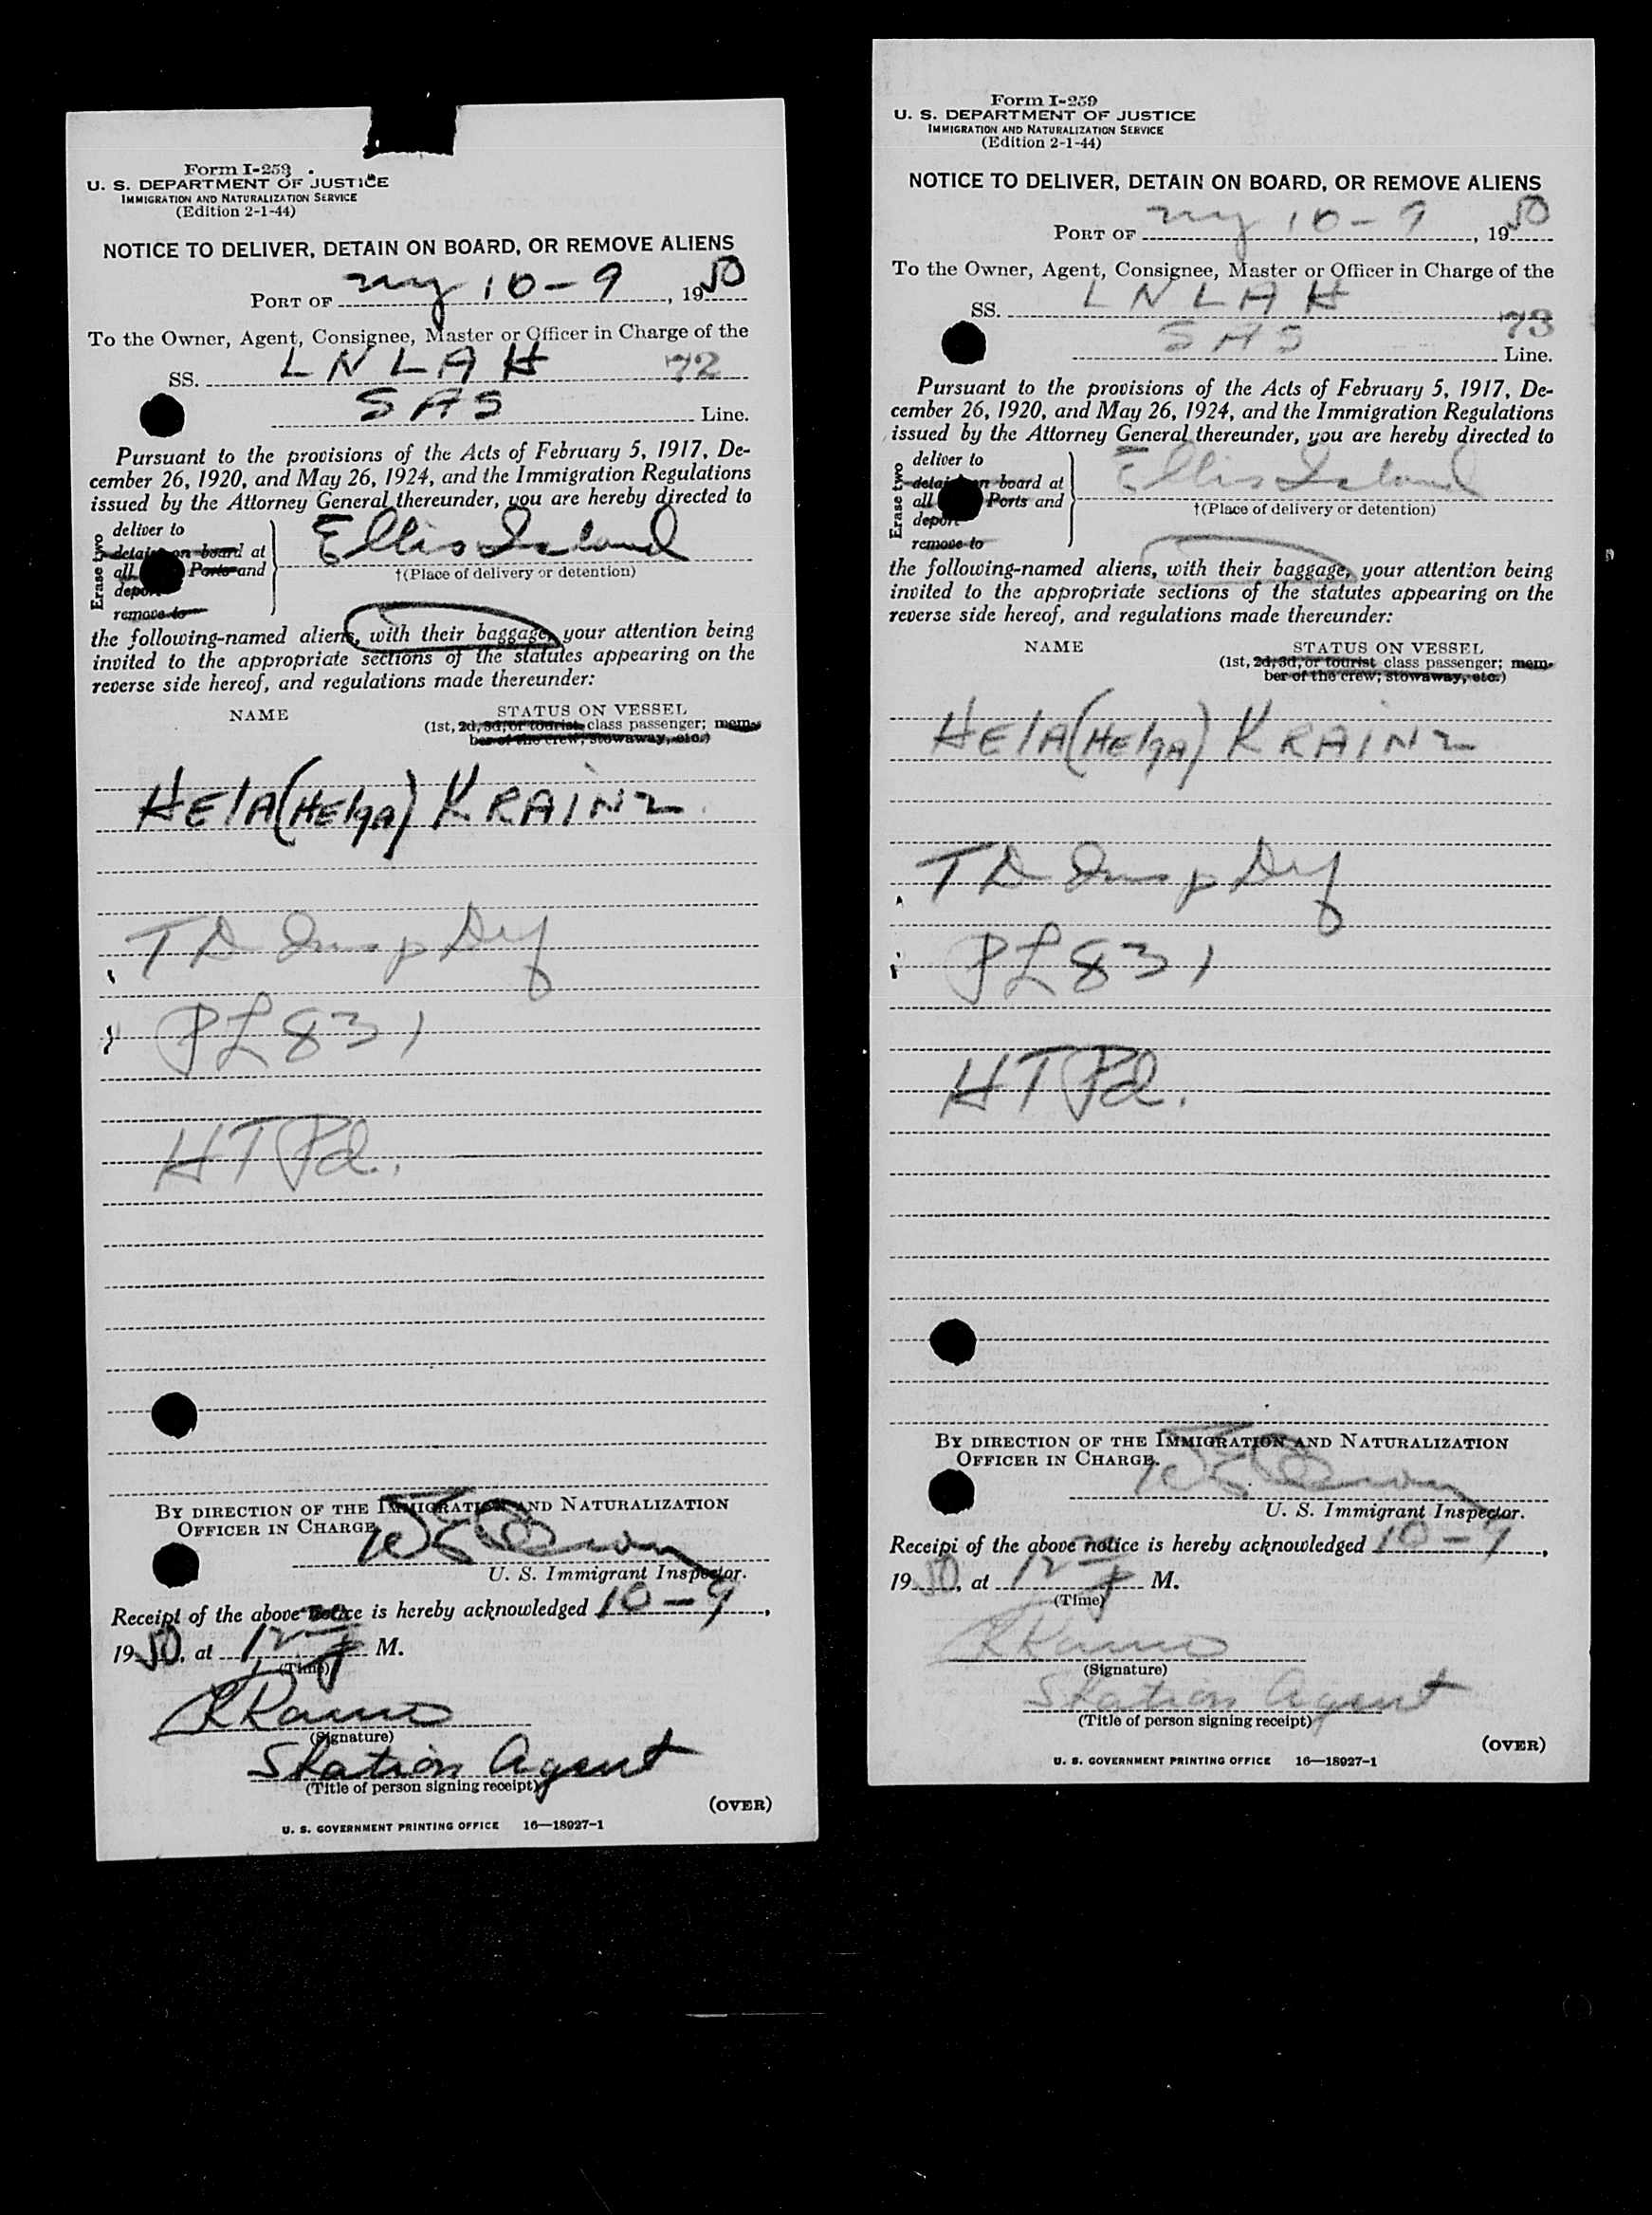 Form I-259
U. S. DEPARTMENT OF JUSTICE
IMMIGRATION AND NATURALIZATION SERVICE
(Edition 2-1-44)
NOTICE TO DELIVER, DETAIN ON BOARD, OR REMOVE ALIENS
PORT OF ny 10-9, 1950
To the Owner, Agent, Consignee, Master or Officer in Charge of the
SS. LNLAH 72
SAS Line.
Pursuant to the provisions of the Acts of February 5, 1917, De-
cember 26, 1920, and May 26, 1924, and the Immigration Regulations
issued by the Attorney General thereunder, you are hereby directed to
Erase two
deliver to
detain on board at
all Ports and
deport
remove to
Ellis Island
†(Place of delivery or detention)
the following-named aliens, with their baggage, your attention being
invited to the appropriate sections of the statutes appearing on the
reverse side hereof, and regulations made thereunder:
NAME STATUS ON VESSEL
(1st, 2d, 3d, or tourist class passenger; mem-
ber of the crew; stowaway, etc.)
HElA (HElgA) KRAINZ
TD Insp Dly
PL 831
HT Pd.
BY DIRECTION OF THE IMMIGRATION AND NATURALIZATION
OFFICER IN CHARGE.
U. S. Immigrant Inspector.
Receipt of the above notice is hereby acknowledged 10-9,
1950, at 12 M.
(Time)
(Signature)
Station Agent
(Title of person signing receipt)
(OVER)
U. S. GOVERNMENT PRINTING OFFICE 16—18927-1
Form I-259
U. S. DEPARTMENT OF JUSTICE
IMMIGRATION AND NATURALIZATION SERVICE
(Edition 2-1-44)
NOTICE TO DELIVER, DETAIN ON BOARD, OR REMOVE ALIENS
PORT OF ny 10-9, 1950
To the Owner, Agent, Consignee, Master or Officer in Charge of the
SS. LNLAH 73
SAS Line.
Pursuant to the provisions of the Acts of February 5, 1917, De-
cember 26, 1920, and May 26, 1924, and the Immigration Regulations
issued by the Attorney General thereunder, you are hereby directed to
Erase two
deliver to
detain on board at
all Ports and
deport
remove to
Ellis Island
†(Place of delivery or detention)
the following-named aliens, with their baggage, your attention being
invited to the appropriate sections of the statutes appearing on the
reverse side hereof, and regulations made thereunder:
NAME STATUS ON VESSEL
(1st, 2d, 3d, or tourist class passenger; mem-
ber of the crew; stowaway, etc.)
HElA (HElgA) KRAINZ
TD Insp Dly
PL 831
HT Pd.
BY DIRECTION OF THE IMMIGRATION AND NATURALIZATION
OFFICER IN CHARGE.
U. S. Immigrant Inspector.
Receipt of the above notice is hereby acknowledged 10-9,
1950, at 12 M.
(Time)
(Signature)
Station Agent
(Title of person signing receipt)
(OVER)
U. S. GOVERNMENT PRINTING OFFICE 16—18927-1